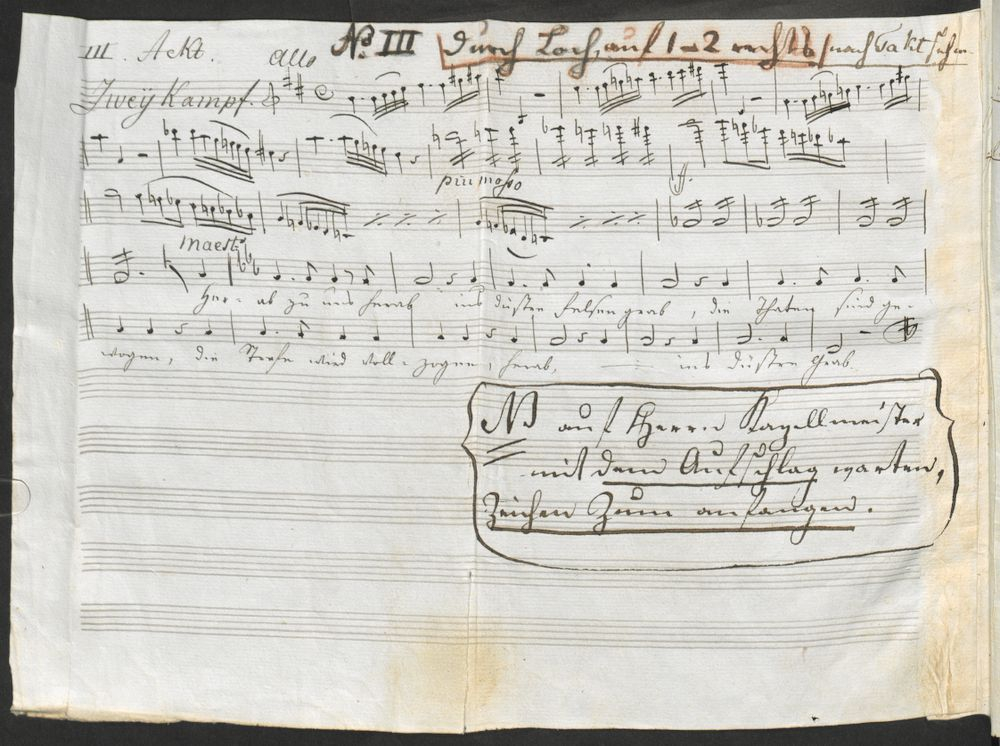 III. Ackt. allo No III durch Loch, auf 1-2 rechts nach Takt sehen
Zweÿ Kampf.
piu mosso sf.
maest:
Her- ab zu uns herab ins düstre Felsengrab, die Thaten sind ge-
wogen, die Strafe wird voll- zogen, herab, ins düstre Grab.
NB auf Herrn Kapellmeister
mit dem Aufschlag warten,
Zeichen Zum anfangen.